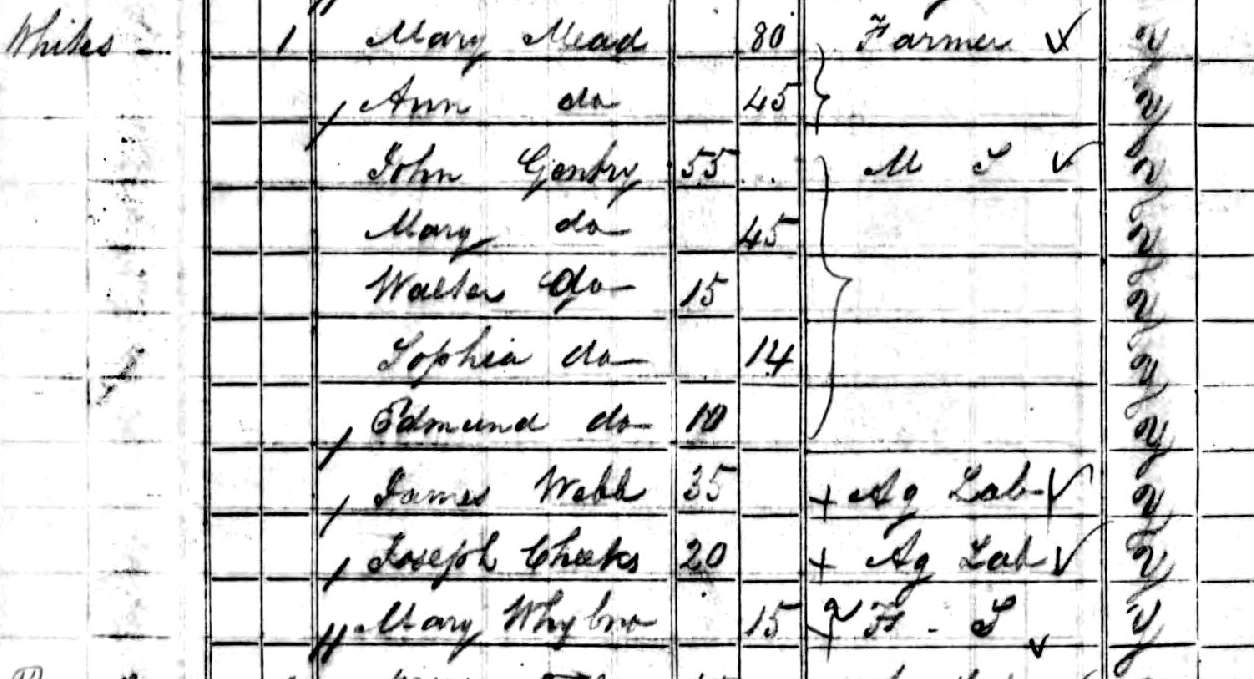 Whites 1 Mary Mead 80 Farmer y
Ann do 45 y
John Gentry 55 M S y
Mary do 45 y
Walter do 15 y
Sophia do 14 y
Edmund do 10 y
James Webb 35 Ag Lab y
Joseph Cheeks 20 Ag Lab y
Mary Whybro 15 F S y